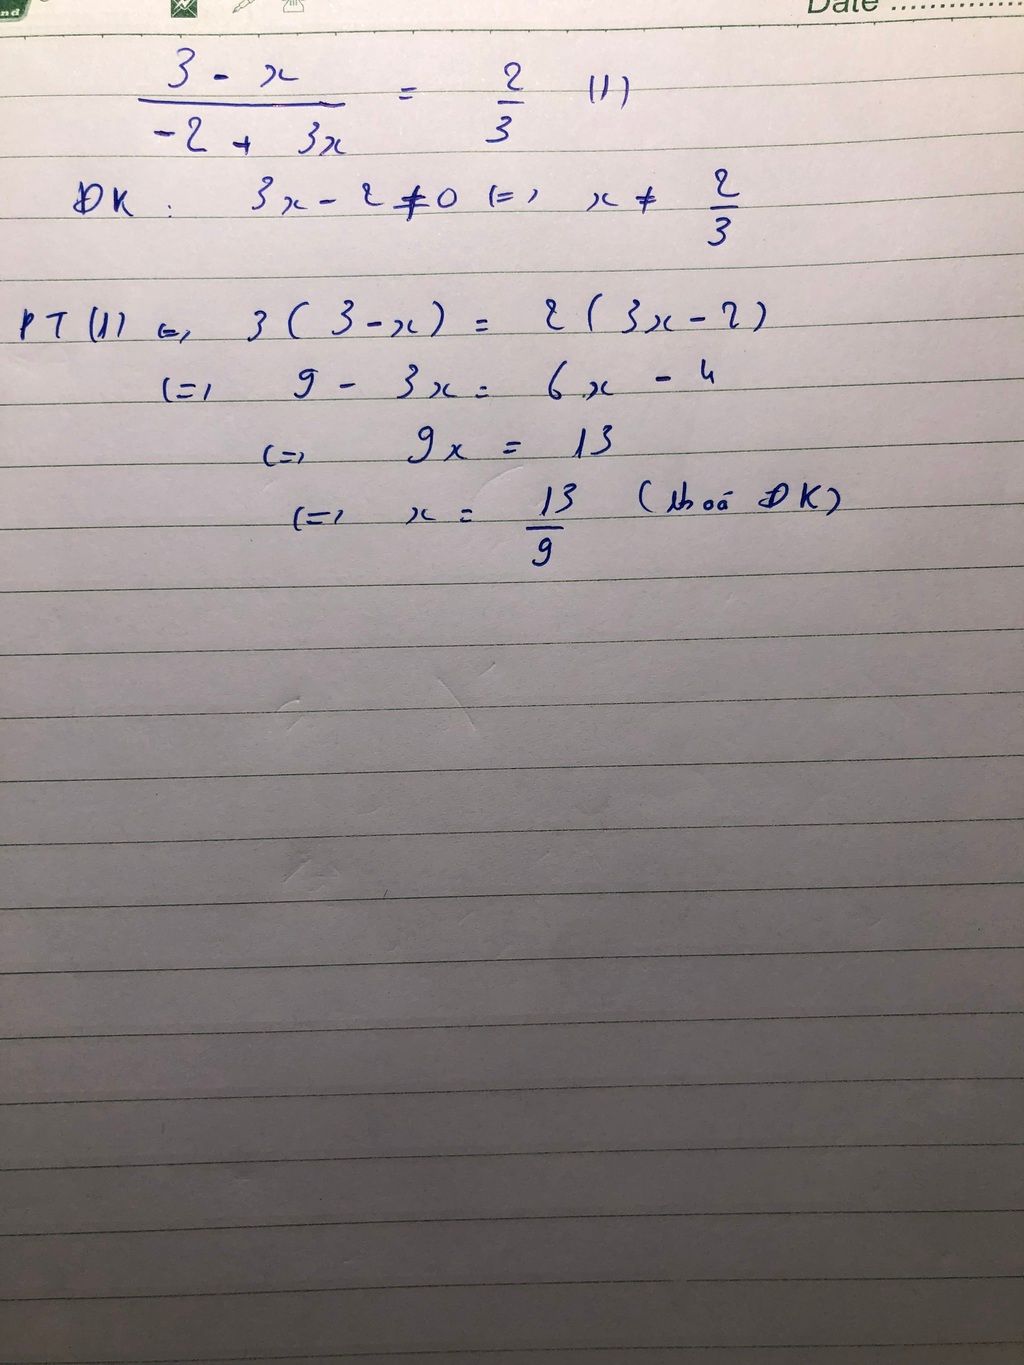 nd
Date ................
3 - x / -2 + 3x = 2/3 (1)
ĐK : 3x - 2 ≠ 0 (=) x ≠ 2/3
PT (1) (=) 3(3-x) = 2(3x-2)
(=) 9 - 3x = 6x - 4
(=) 9x = 13
(=) x = 13/9 (thoả ĐK)